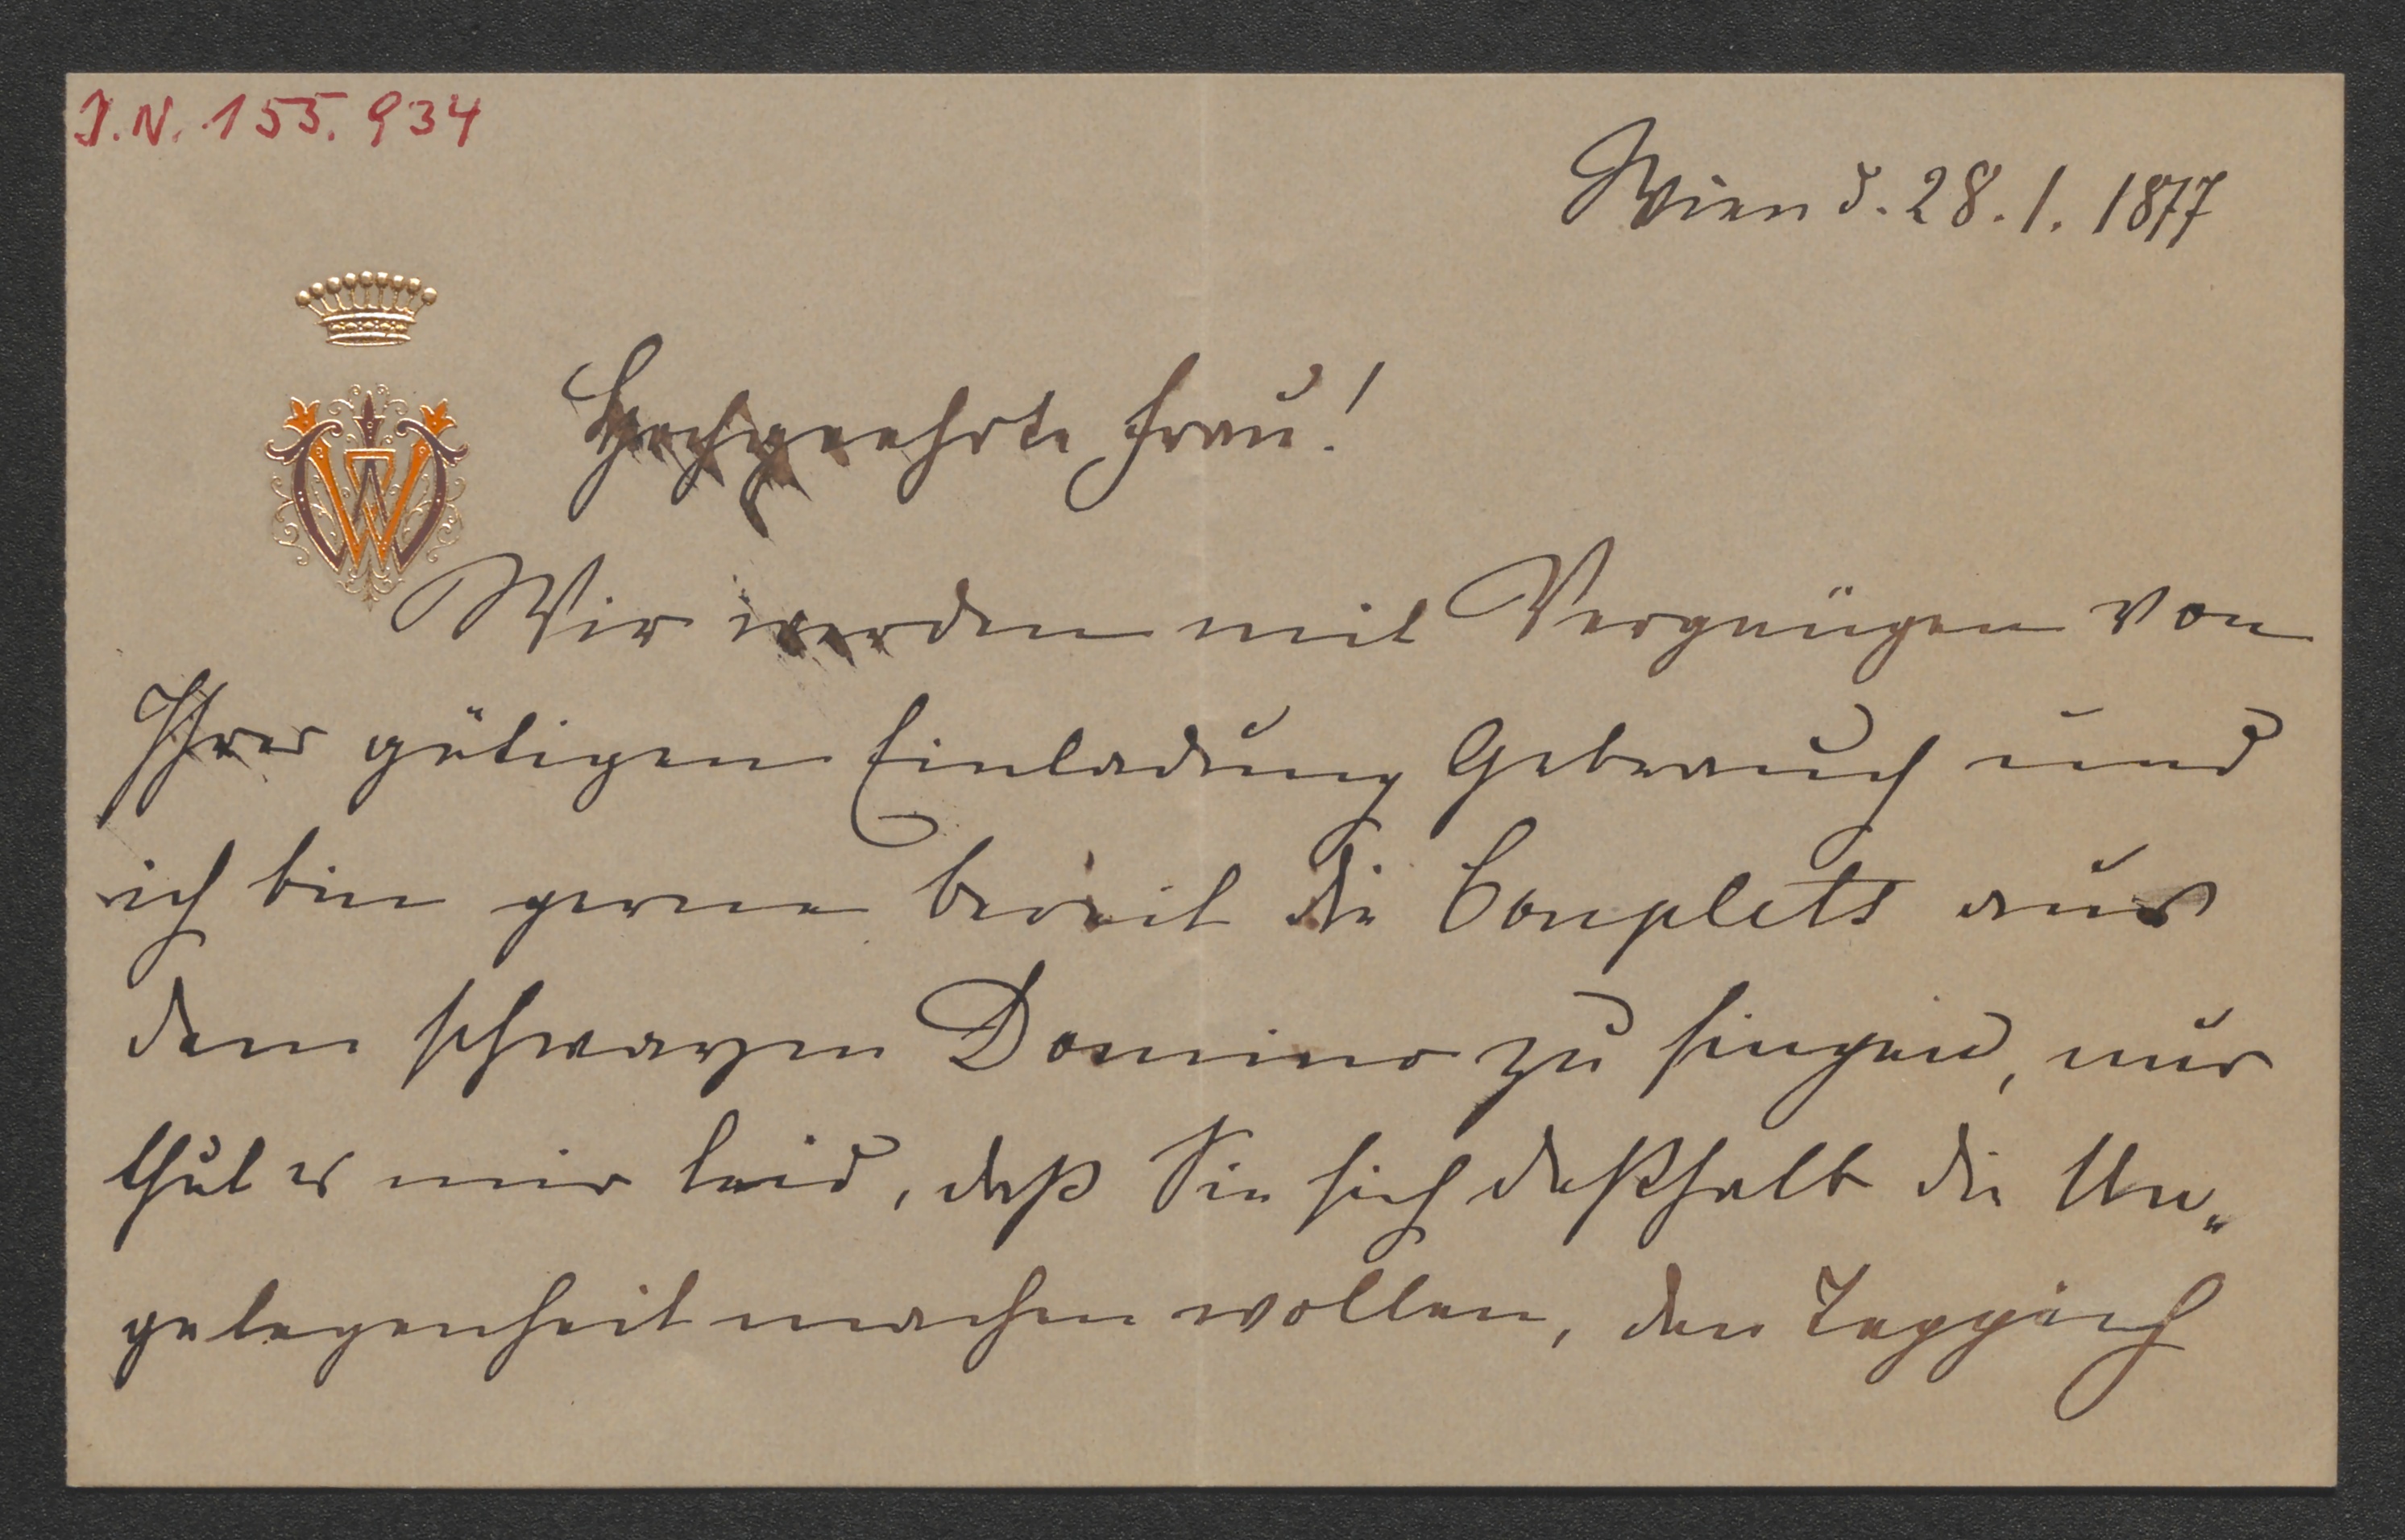 J.N. 155.934
Wien d. 28. 1. 1877
Hochgeehrte Frau!
Wir werden mit Vergnügen von
Ihrer gütigen Einladung Gebrauch und
ich bin gerne bereit die Couplets aus
dem schwarzen Domino zu singen, nur
thut es mir leid, daß Sie sich deßhalb die Un„
gelegenheit machen wollen, den Teppich